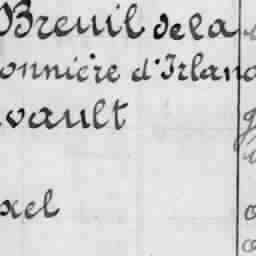 Breuil de la
onnière d'Irlan
vault
xel